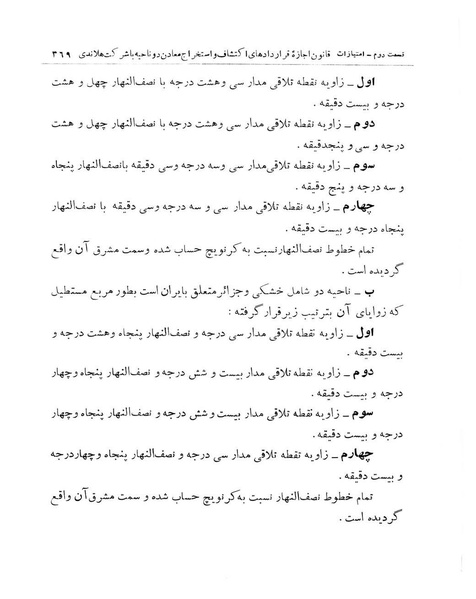 قسمت دوم - امتیازات قانون اجازهٔ قراردادهای اکتشاف و استخراج معادن دو ناحیه با شرکت هلاندی ۳۶۹
اول - زاویه نقطه تلاقی مدار سی وهشت درجه با نصف‌النهار چهل و هشت
درجه و بیست دقیقه .
دوم - زاویه نقطه تلاقی مدار سی وهشت درجه با نصف‌النهار چهل و هشت
درجه و سی و پنجدقیقه .
سوم - زاویه نقطه تلاقی مدار سی و سه درجه وسی دقیقه بانصف‌النهار پنجاه
و سه درجه و پنج دقیقه .
چهارم - زاویه نقطه تلاقی مدار سی و سه درجه وسی دقیقه با نصف‌النهار
پنجاه درجه و بیست دقیقه .
تمام خطوط نصف‌النهار نسبت به گرنویچ حساب شده وسمت مشرق آن واقع
گردیده است .
ب - ناحیه دو شامل خشکی وجزائر متعلق بایران است بطور مربع مستطیل
که زوایای آن بترتیب زیر قرار گرفته :
اول - زاویه نقطه تلاقی مدار سی درجه و نصف‌النهار پنجاه وهشت درجه و
بیست دقیقه .
دوم - زاویه نقطه تلاقی مدار بیست و شش درجه و نصف‌النهار پنجاه وچهار
درجه و بیست دقیقه .
سوم - زاویه نقطه تلاقی مدار بیست و شش درجه و نصف‌النهار پنجاه وچهار
درجه و بیست دقیقه .
چهارم - زاویه نقطه تلاقی مدار سی درجه و نصف‌النهار پنجاه وچهاردرجه
و بیست دقیقه .
تمام خطوط نصف‌النهار نسبت به گرنویچ حساب شده و سمت مشرق آن واقع
گردیده است .